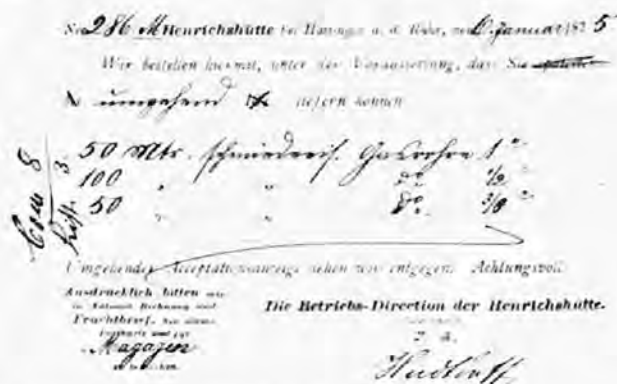 No 286 M Henrichshütte bei Hattingen a. d. Ruhr, den 6. Januar 187 5
Wir bestellen hiermit, unter der Voraussetzung, dass Sie
umgehend liefern können
50 Mtr. schmiedeeis. Gasrohre 1 "
100 " " do 1/2 "
50 " " do 3/8 "
Umgehender Acceptationsanzeige sehen wir entgegen. Achtungsvoll
Ausdrücklich bitten wir
in Rechnung und
Frachtbrief,
Magazin
Die Betriebs-Direction der Henrichshütte.